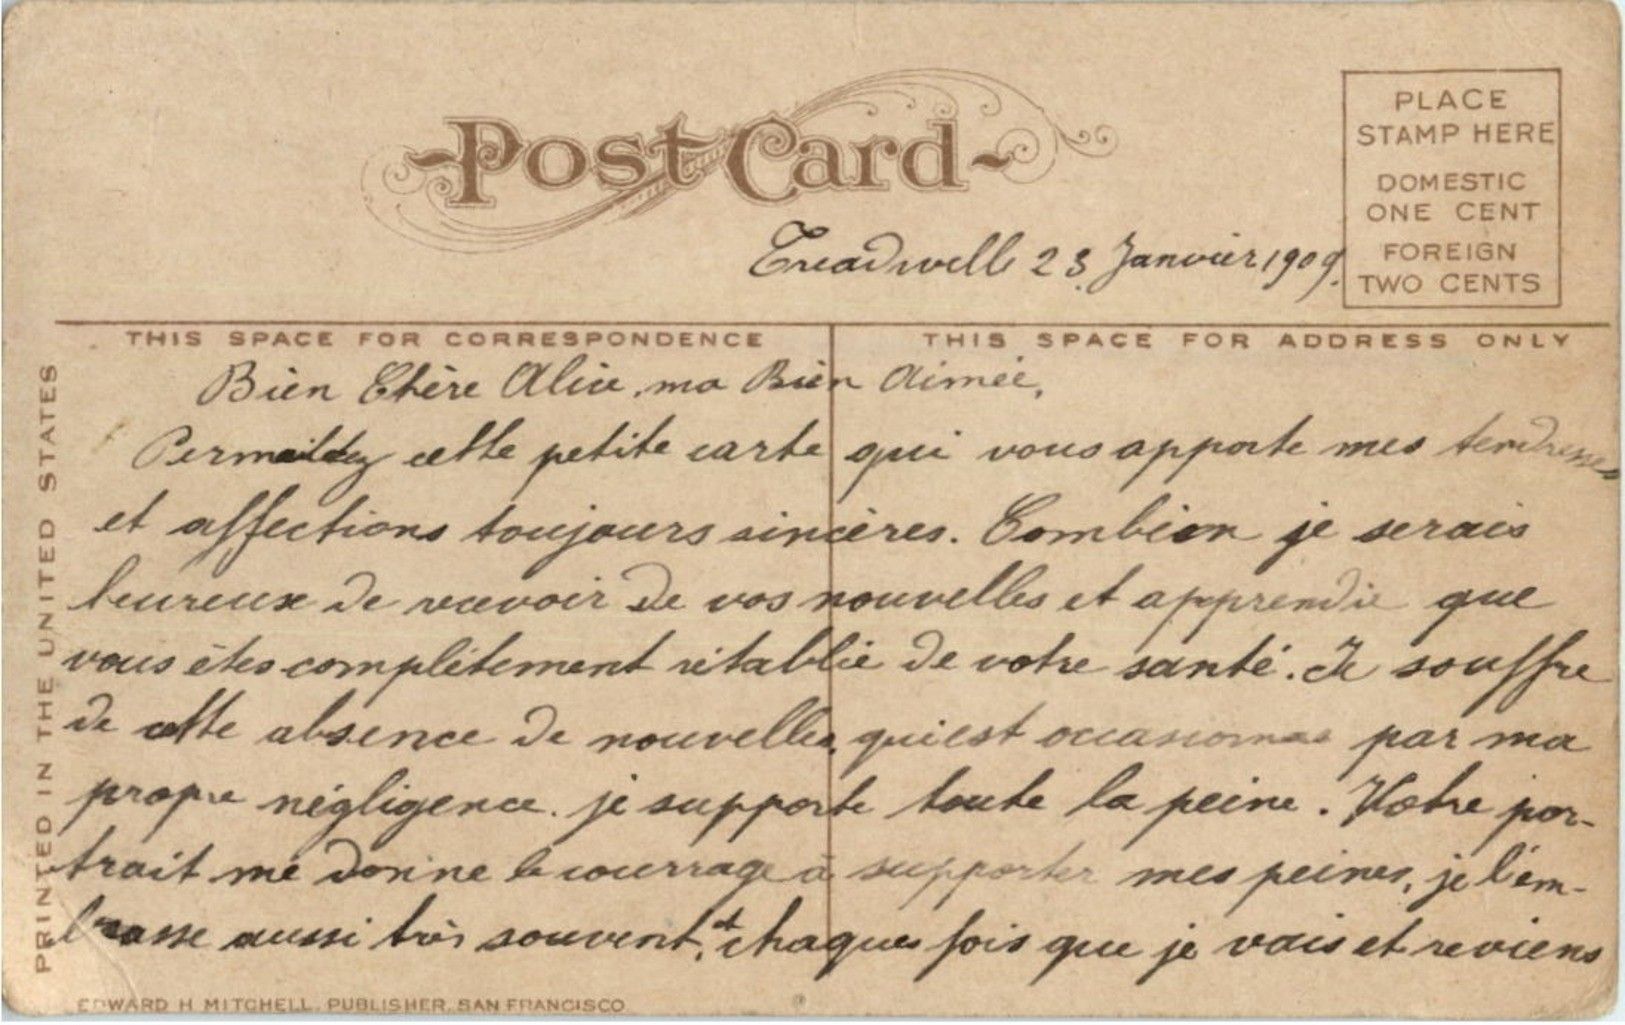 Post Card
PLACE
STAMP HERE
DOMESTIC
ONE CENT
FOREIGN
TWO CENTS
Treadwell 23 Janvier 1909.
THIS SPACE FOR CORRESPONDENCE
THIS SPACE FOR ADDRESS ONLY
Bien Chère Alice, ma Bien Aimée,
cette petite carte qui vous apporte mes tendresses
et affections toujours sincères. Combien je serais
heureux de recevoir de vos nouvelles et apprendre que
vous êtes complétement rétablie de votre santé. Je souffre
de cette absence de nouvelles, qui est par ma
propre négligence. je supporte toute la peine. Votre por-
trait me donne le courrage à supporter mes peines, je l'em-
brasse aussi très souvent, et chaques fois que je vais et reviens
PRINTED IN THE UNITED STATES
EDWARD H MITCHELL, PUBLISHER, SAN FRANCISCO